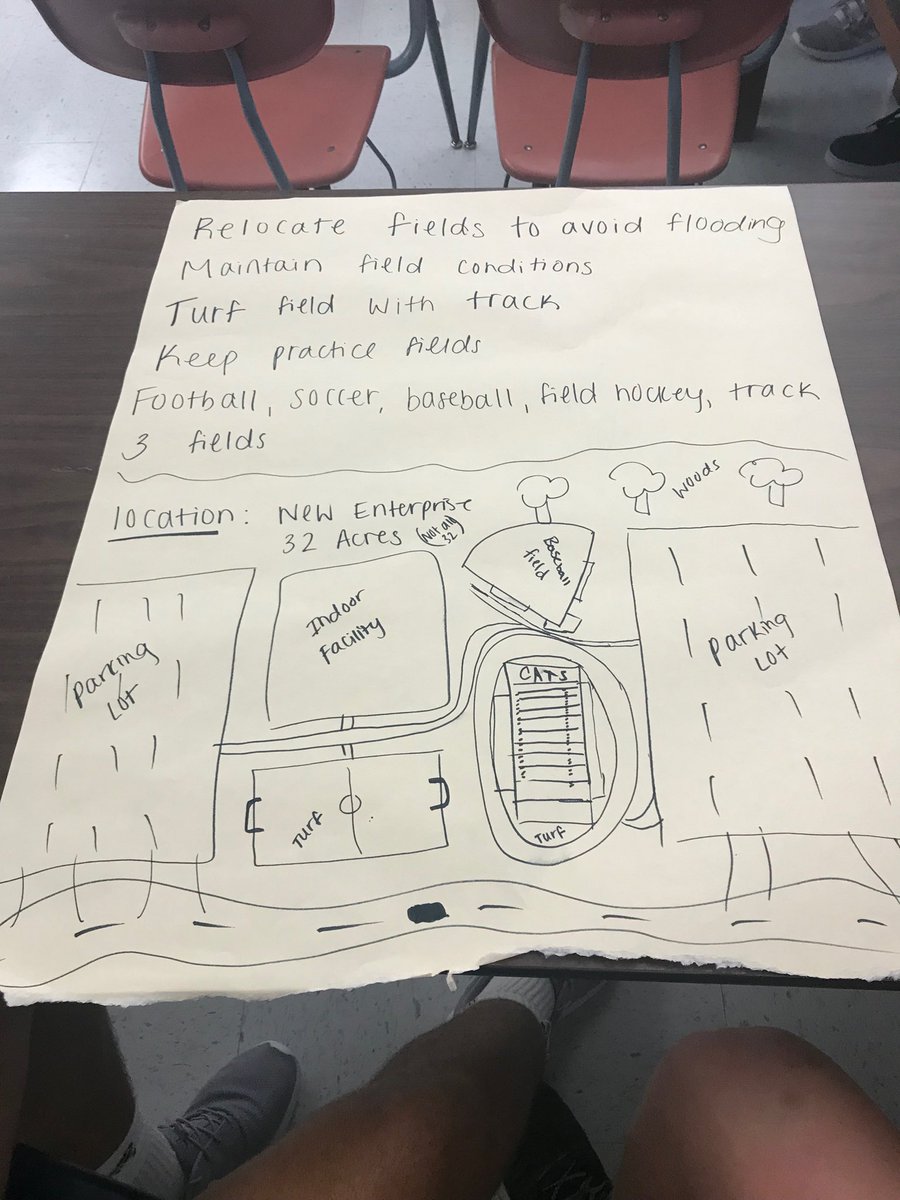 Relocate fields to avoid flooding
Maintain field conditions
Turf field with track
Keep practice fields
Football, soccer, baseball, field hockey, track
3 fields
woods
location: New Enterprise
32 Acres (not all 32)
Baseball
field
Indoor
Facility
Parking
Lot
Parking
Lot
CATS
Turf
Turf